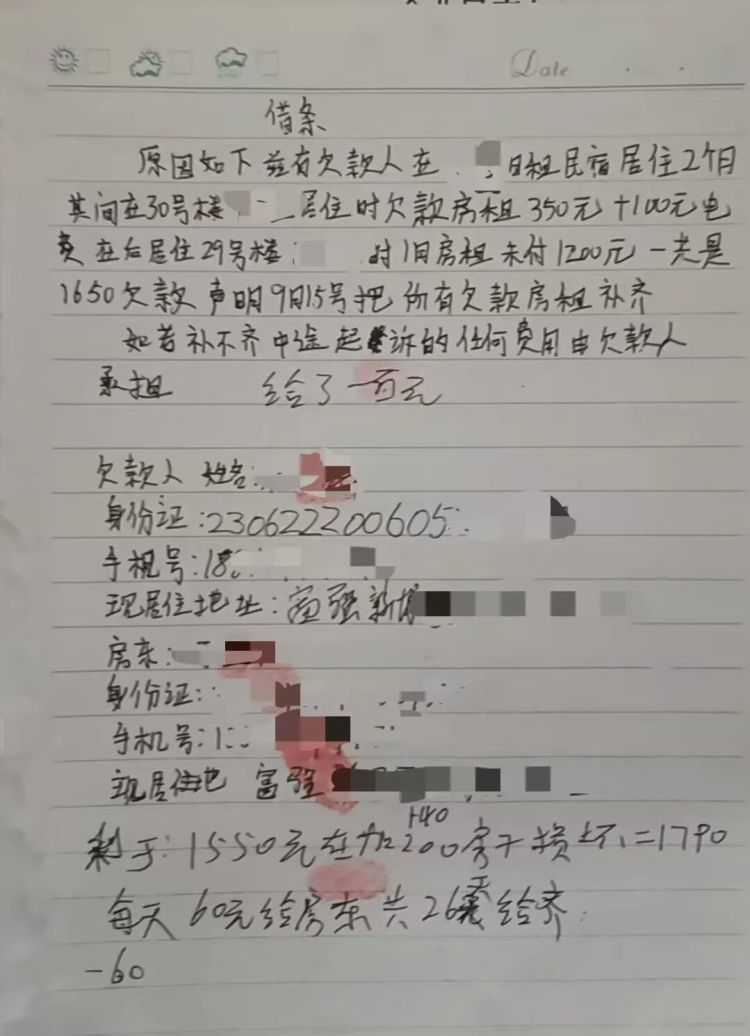 Date
借条
原因如下 兹有欠款人在 日租民宿居住2个月
其间在30号楼 居住时欠款房租350元+100元电
费 在后居住29号楼 时1日房租未付1200元 一共是
1650欠款 声明9日15号把所有欠款房租补齐
如若补不齐中途起诉的任何费用由欠款人
承担 给了一百元
欠款人 姓名:
身份证:230622200605
手机号:18
现居住地址:富强新城
房东:
身份证:
手机号:1
现居住地 富强
+40
剩于:1550元在加200房子损坏=1790
每天60元给房东共26天给齐
-60